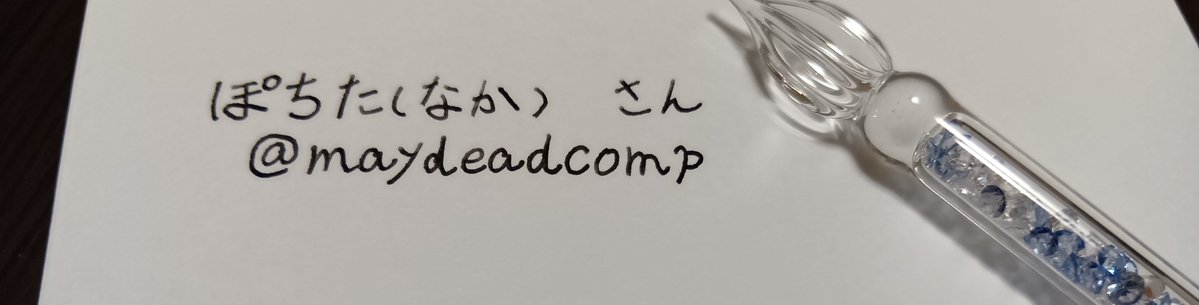 ぽちた(なか)　さん
@maydeadcomp